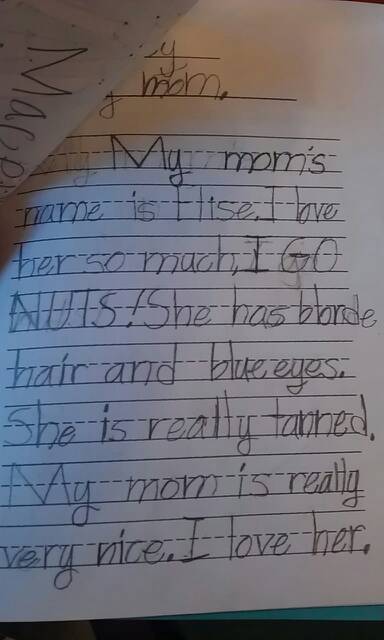 mom.
My mom's
name is Elise. I love
her so much, I GO
NUTS! She has blonde
hair and blue eyes.
She is really tanned.
My mom is really
very nice. I love her.